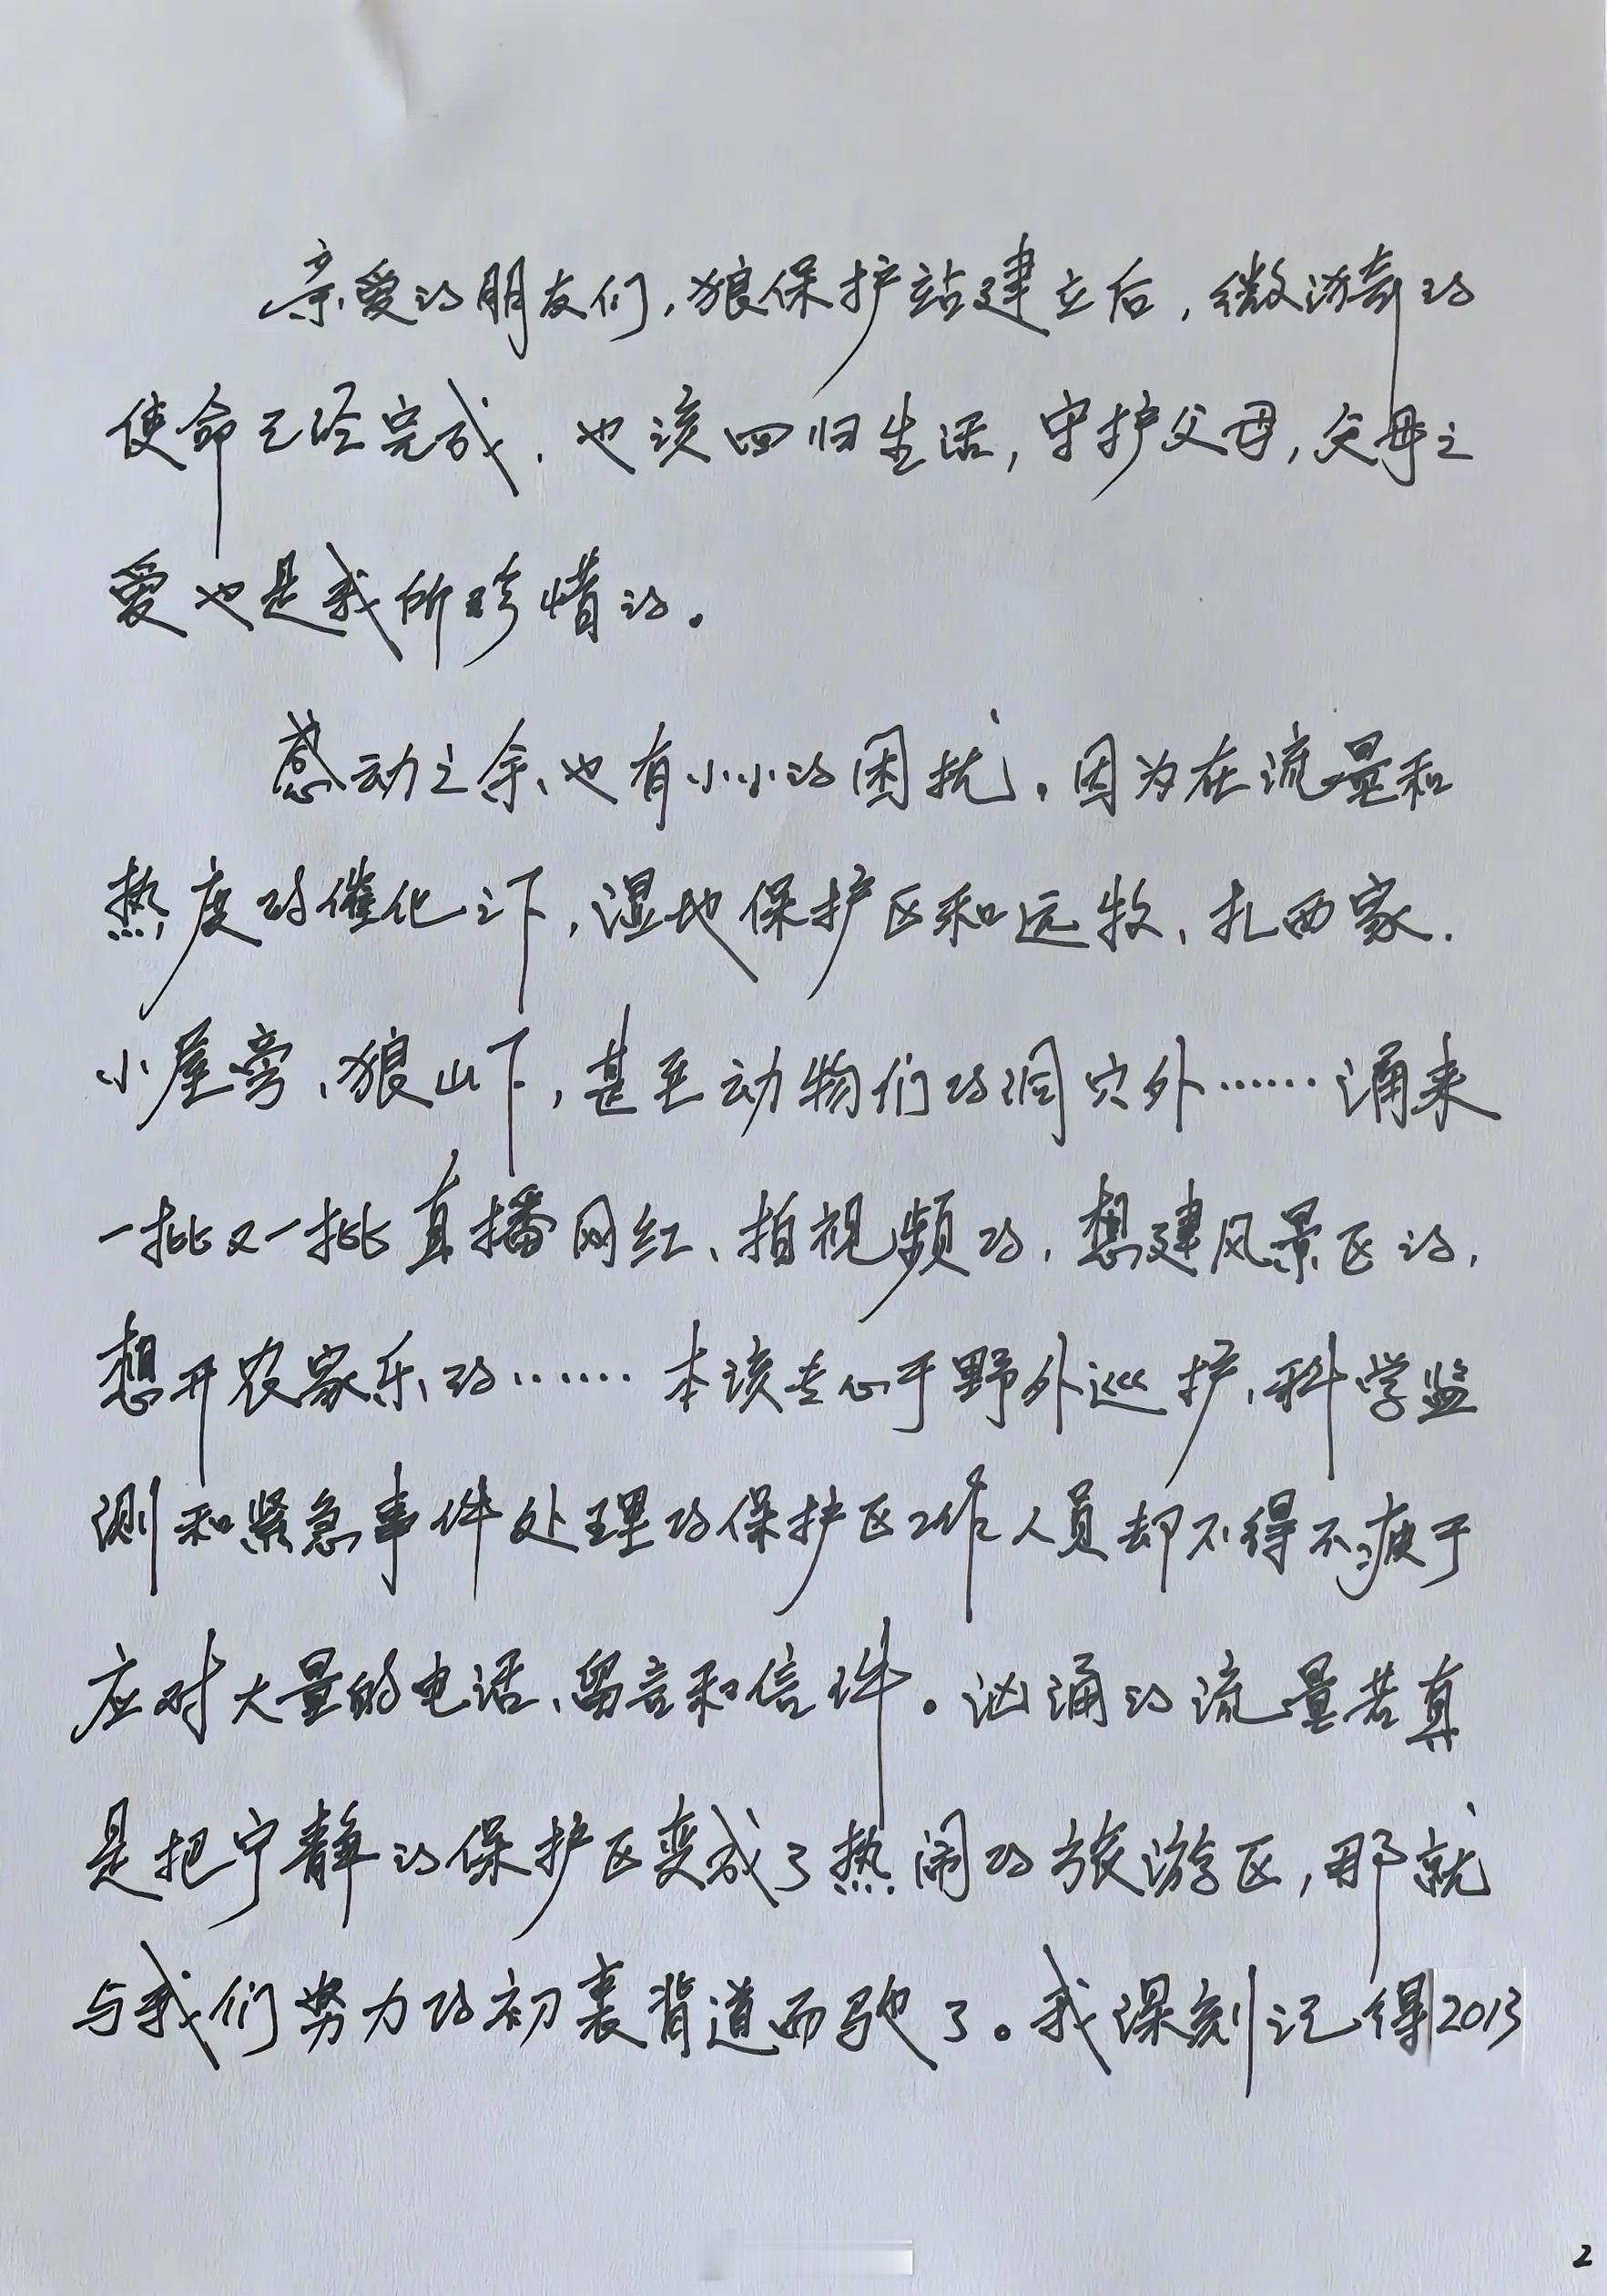 亲爱的朋友们，狼保护站建立后，微漪的
使命已经完成，也该回归生活，守护父母，父母之
爱也是我所珍惜的。
感动之余、也有小小的困扰。因为在流量和
热度的催化之下，湿地保护区和远牧、扎西家、
小屋旁、狼山下，甚至动物们的洞穴外……涌来
一批又一批直播网红、拍视频的，想建风景区的，
想开农家乐的……本该专心于野外巡护、科学监
测和紧急事件处理的保护区工作人员却不得不疲于
应对大量的电话、留言和信件。汹涌的流量若真
是把宁静的保护区变成了热闹的旅游区，那就
与我们努力的初衷背道而驰了。我深刻记得2013
2